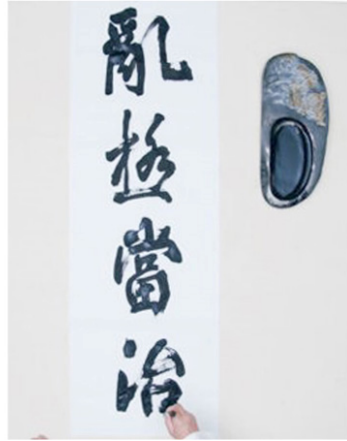 亂極當治